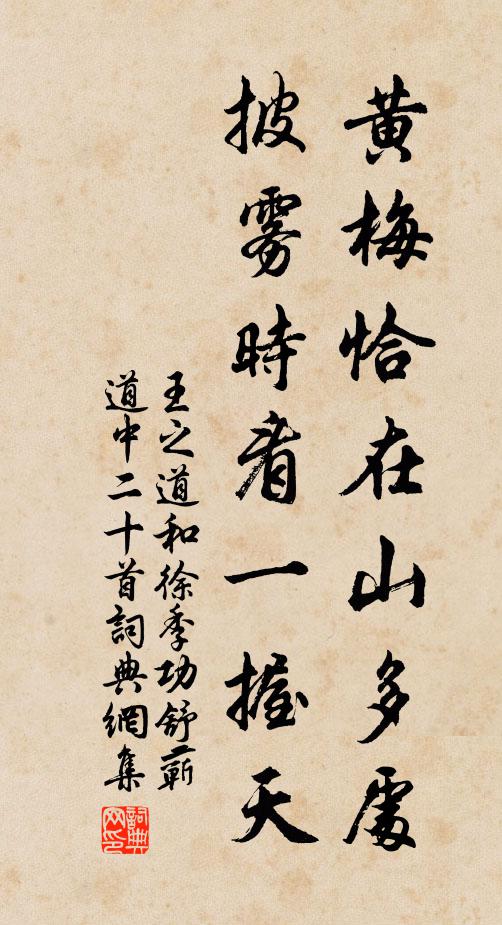 黃梅恰在山多處
披雾時看一握天
王之道和徐季功舒蘄
道中二十首詞典網集
詞典网印